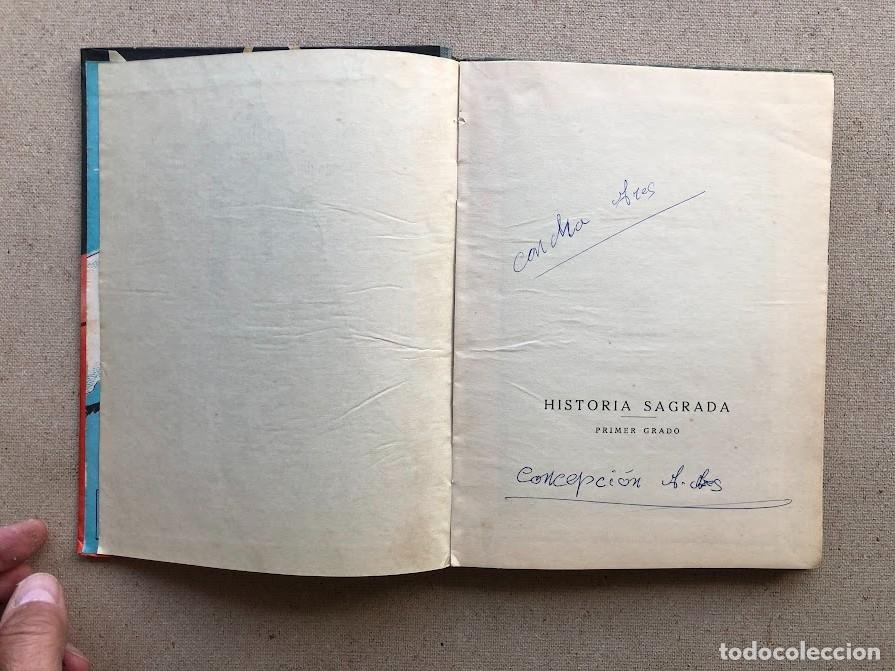 Concha Ares
HISTORIA SAGRADA
PRIMER GRADO
Concepción A.
todocoleccion